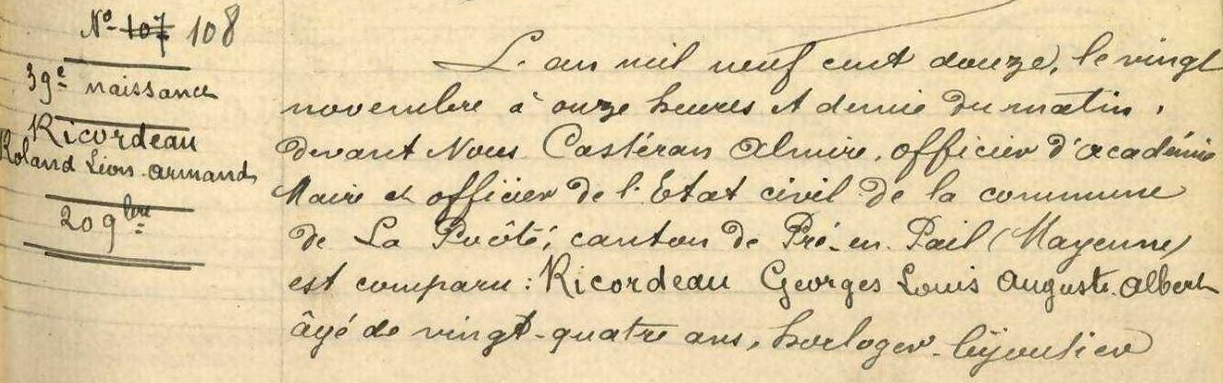 N° 107 108
39e naissance
Ricordeau
Roland Léon-Armand
20 9bre
L'an mil neuf cent douze, le vingt
novembre à onze heures et demie du matin,
devant Nous Castéran Almire, officier d'académie
Maire et officier de l'Etat civil de la commune
de La Poôté, canton de Pré-en-Pail (Mayenne)
est comparu : Ricordeau Georges Louis Auguste Albert
âgé de vingt-quatre ans, horloger-bijoutier